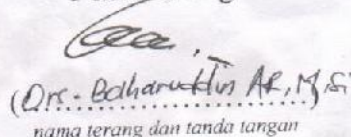 (Drs. Baharuddin AR, M.Si
nama terang dan tanda tangan